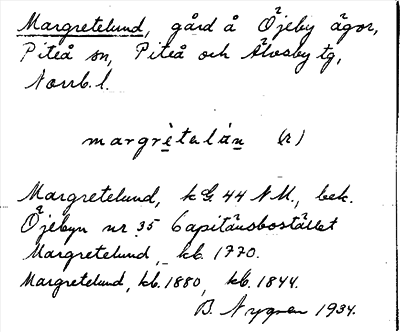 Margretelund, gård å Öjeby ägor,
Piteå sn, Piteå och Älvsby tg,
Norrb. l.
margrètalùn (r)
Margretelund, kG 44 NM., bek.
Öjebyn nr 35 Capitänsbostället
Margretelund, kb. 1770.
Margretelund, kb. 1880, kb. 1844.
B. Nygren 1934.